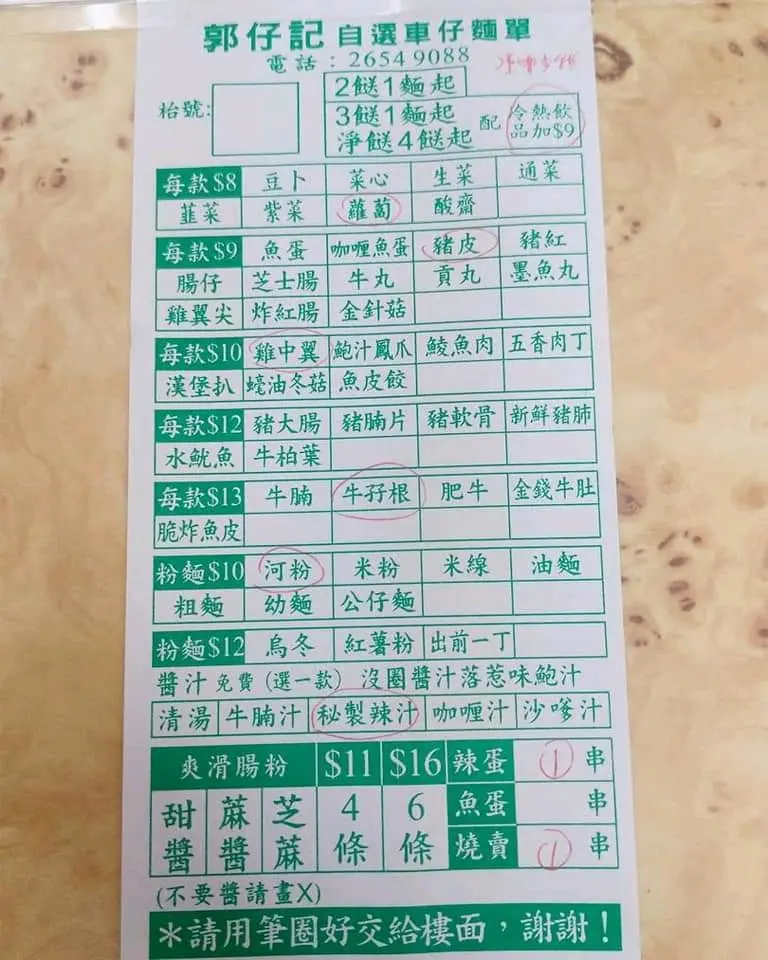 郭仔記 自選車仔麵單
電話：2654 9088
枱號:
2餸1麵起
3餸1麵起
淨餸4餸起
配 冷熱飲品加$9
每款$8 豆卜 菜心 生菜 通菜
韮菜 紫菜 蘿蔔 酸齋
每款$9 魚蛋 咖喱魚蛋 豬皮 豬紅
腸仔 芝士腸 牛丸 貢丸 墨魚丸
雞翼尖 炸紅腸 金針菇
每款$10 雞中翼 鮑汁鳳爪 鯪魚肉 五香肉丁
漢堡扒 蠔油冬菇 魚皮餃
每款$12 豬大腸 豬腩片 豬軟骨 新鮮豬肺
水魷魚 牛柏葉
每款$13 牛腩 牛孖根 肥牛 金錢牛肚
脆炸魚皮
粉麵$10 河粉 米粉 米線 油麵
粗麵 幼麵 公仔麵
粉麵$12 烏冬 紅薯粉 出前一丁
醬汁 免費 (選一款) 沒圈醬汁落惹味鮑汁
清湯 牛腩汁 秘製辣汁 咖喱汁 沙嗲汁
爽滑腸粉 $11 $16 辣蛋 1 串
甜醬 蔴醬 芝蔴 4條 6條 魚蛋 串
燒賣 1 串
(不要醬請畫X)
＊請用筆圈好交給樓面，謝謝！